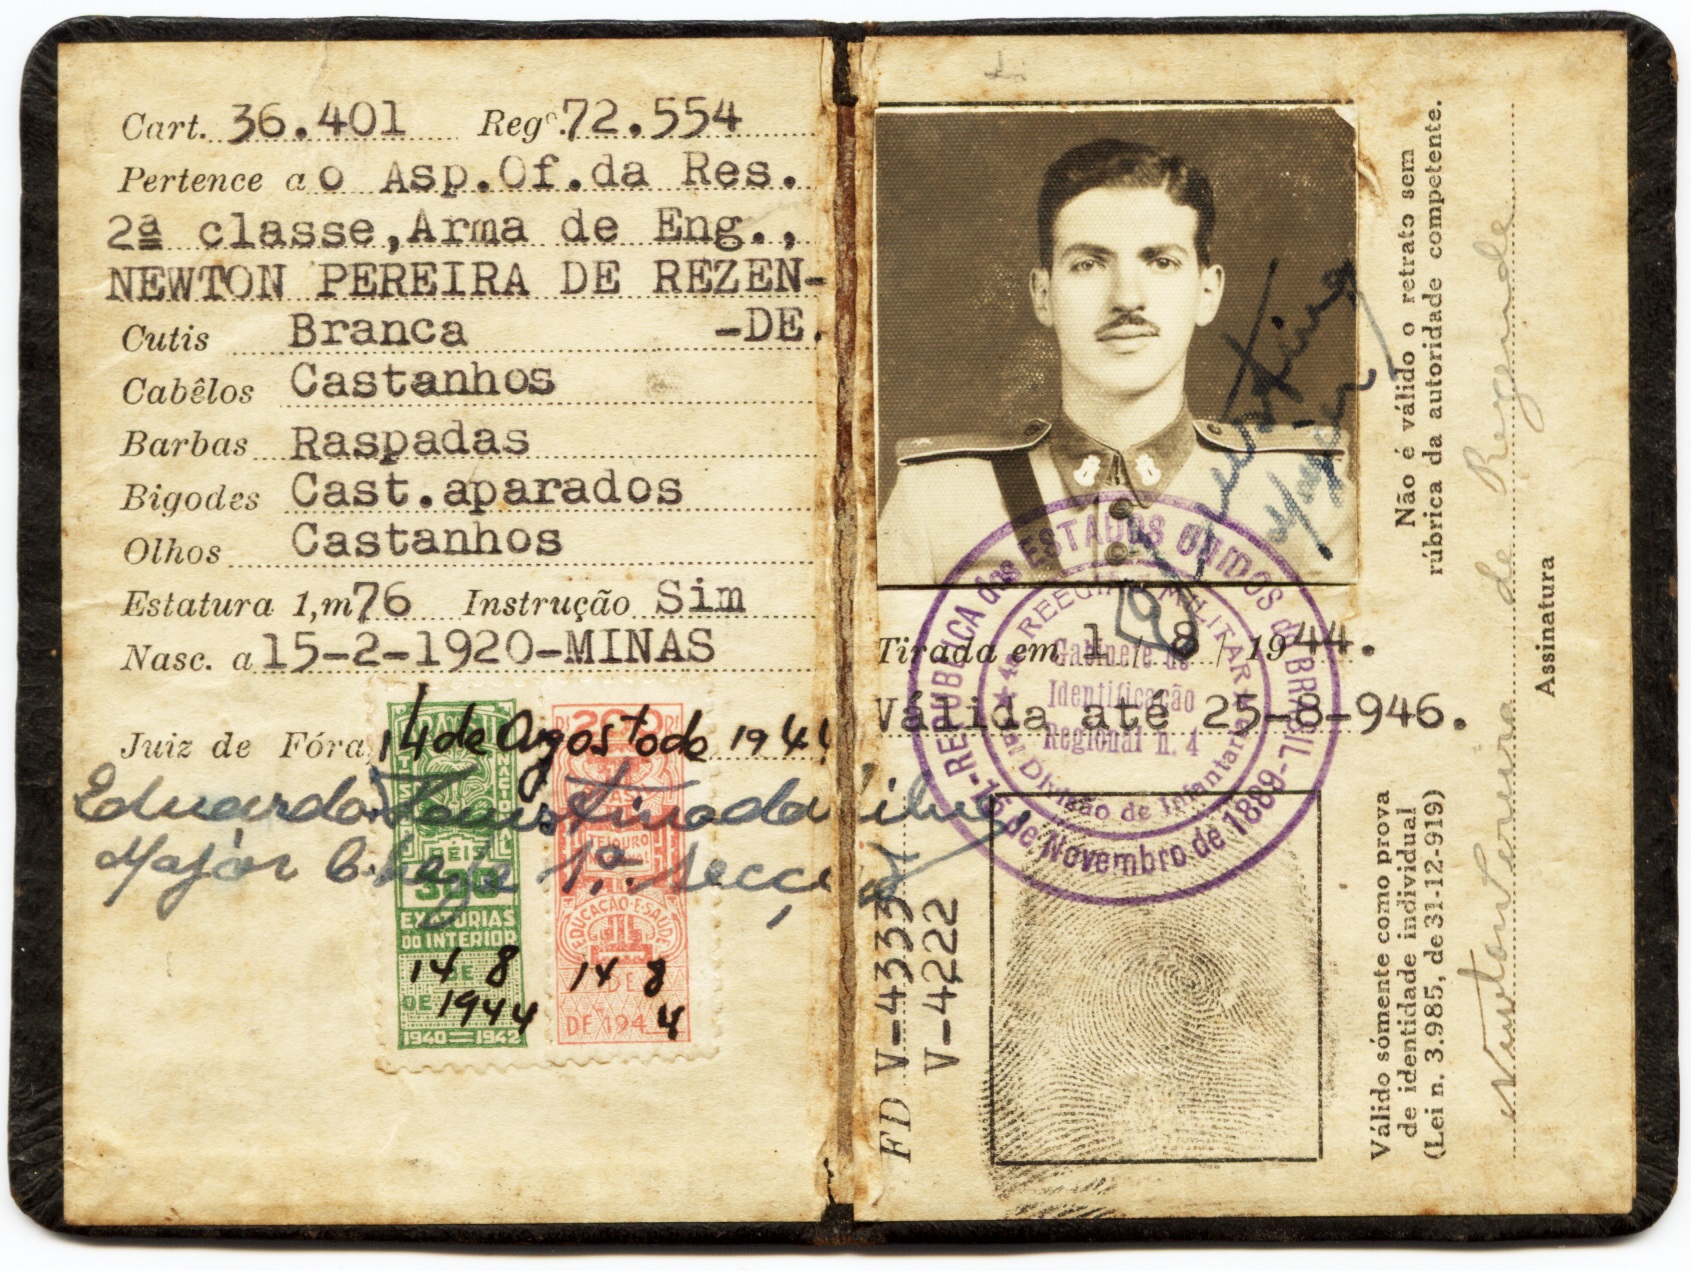 Cart. 36.401 Regº. 72.554
Pertence a o Asp.Of.da Res.
2ª classe,Arma de Eng.,
NEWTON PEREIRA DE REZEN-
Cutis Branca -DE.
Cabêlos Castanhos
Barbas Raspadas
Bigodes Cast.aparados
Olhos Castanhos
Estatura 1,m76 Instrução Sim
Nasc. a 15-2-1920-MINAS
Juiz de Fóra, 14 de Agosto do 194
Eduardo Faustino da Silva
Major Chefe 1ª. Secção
RÉIS
300
EXATORIAS
DO INTERIOR
14 8
DE
DE 1944
1940=1942
200
TESOURO
EDUCAÇÃO E SAÚDE
14 8
DE
DE 194 4
Tirada em 1 / 8 / 1944.
Válida até 25-8-946.
REPUBLICA dos ESTADOS UNIDOS do BRASIL
15 de Novembro de 1889
4a REEGIÃO MILITAR
Divisão de Infantaria
Gabinete de
Identificação
Regional n. 4
FD V-4333
V-4222
Não é válido o retrato sem
rúbrica da autoridade competente.
Válido sómente como prova
de identidade individual
(Lei n. 3.985, de 31-12-919)
Newton Pereira de Rezende
Assinatura